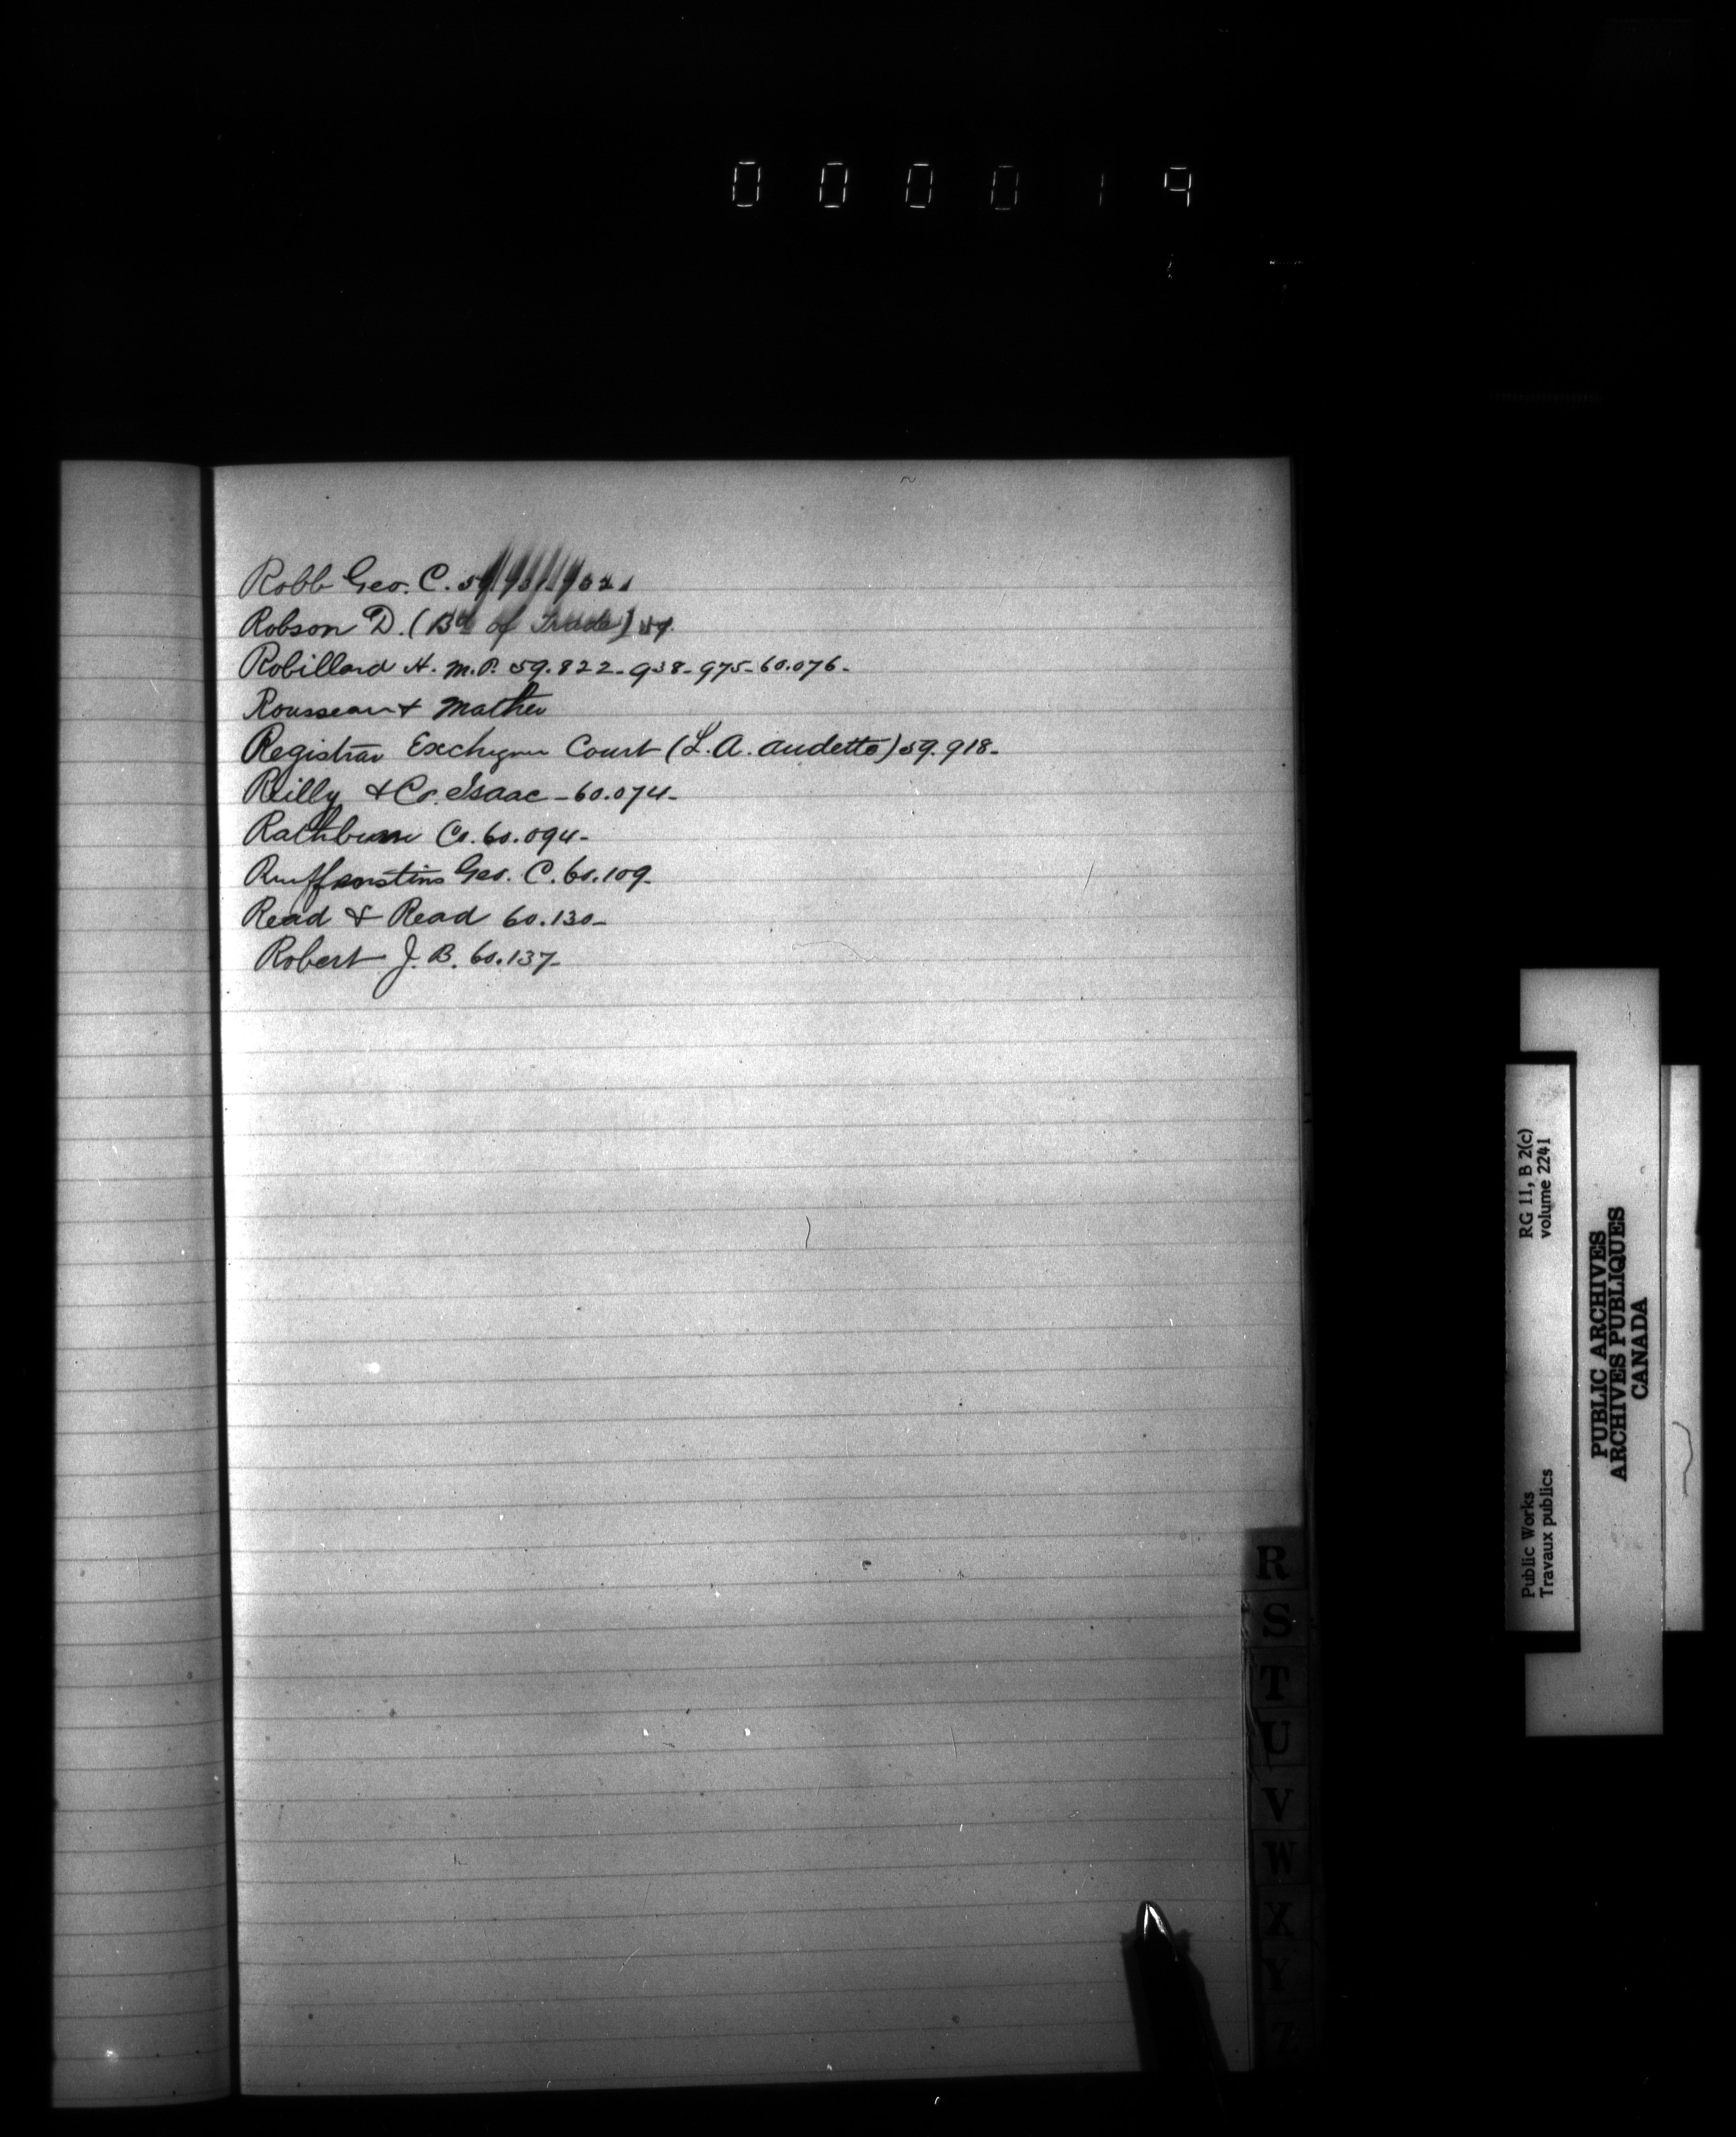 000019
Robb Geo. C.
Robson D. (Bd of Trade) 59.
Robillard H. M.P. 59.822-938-975-60.076-
Rousseau & Mather
Registrar Exchequer Court (L.A. Audette) 59.918-
Reilly & Co. Isaac -60.074-
Rathbun Co. 60.094-
Geo. C. 60.109-
Read & Read 60.130-
Robert J. B. 60.137-
R
S
T
U
V
W
X
Y
Z
Public Works
Travaux publics
RG 11, B 2(c)
volume 2241
PUBLIC ARCHIVES
ARCHIVES PUBLIQUES
CANADA